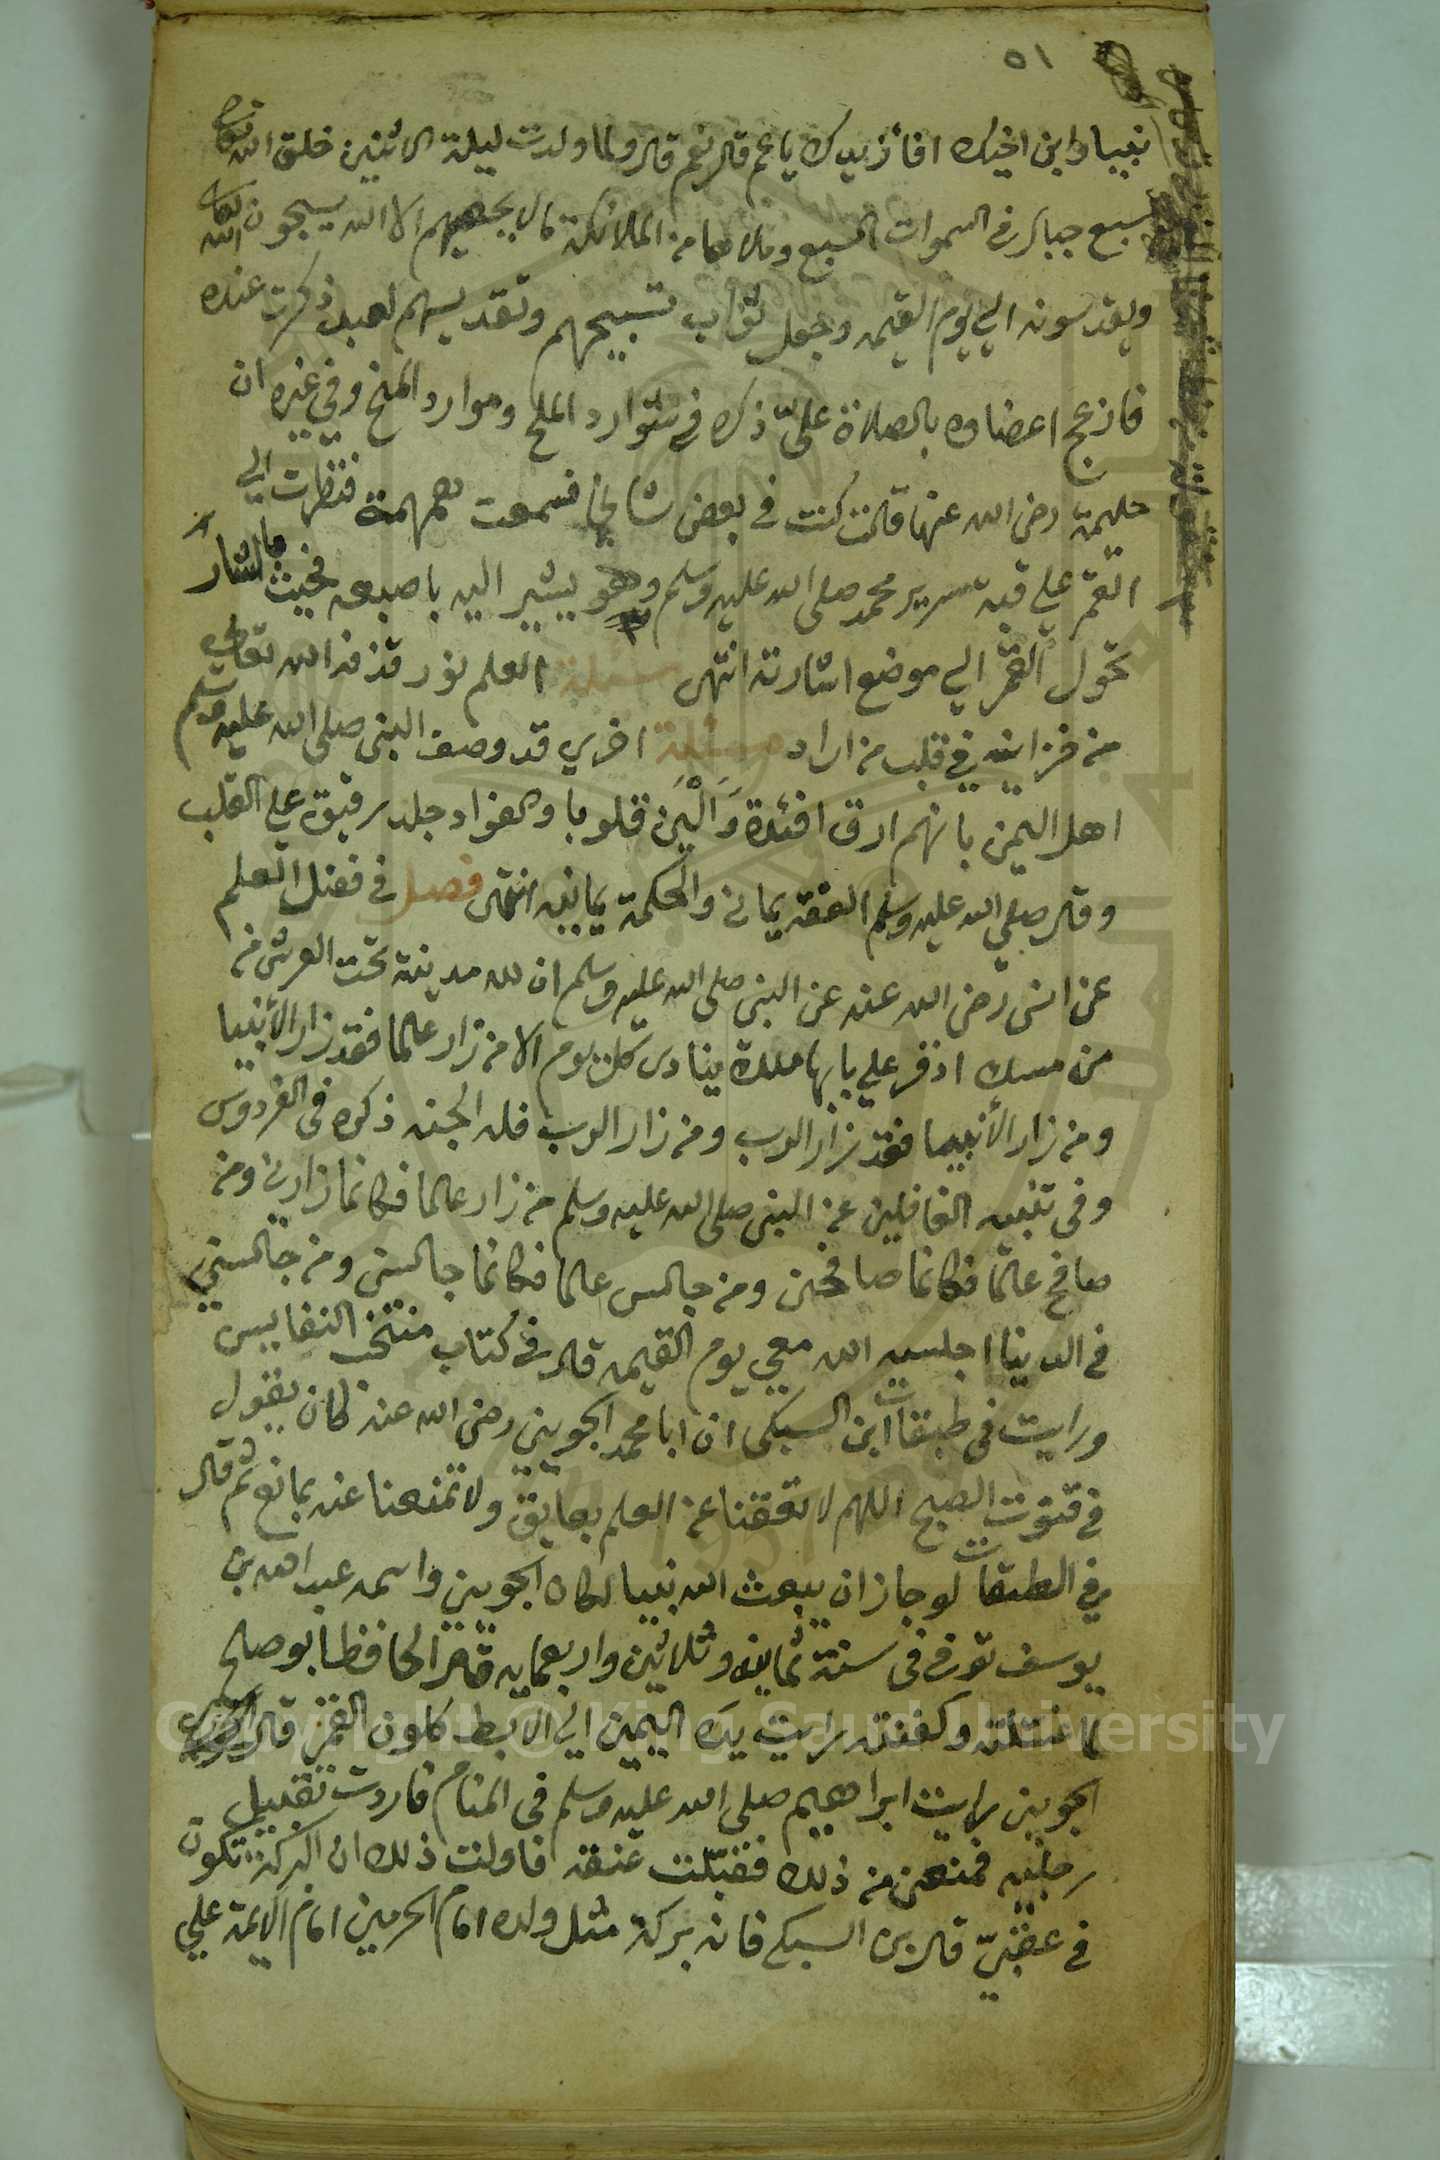 ٥١
نبيا وابن اخيك افأزيدك يا عم قال نعم قال ولما ولدت ليلة الاثنين خلق الله تعالى
سبع جبال في السموات السبع وملاها من الملائكة مالا يحصيهم الا الله يسبحون الله تعالى
ويقدسونه الي يوم القيمه وجعل ثواب تسبيحهم وتقديسهم لعبد ذكرت عنده
فانزعج اعضاوه بالصلاة عليّ ذكره في شوارد الملح وموارد المنح وفي غيره ان
حليمة رضي الله عنها قالت كنت في بعض فسمعت همهمة فنظرت الي
القمر علي قبة سرير محمد صلى الله عليه وسلم وهو يشير اليه باصبعه فحيث ما اشار
تحول القمر الي موضع اشارته انتهى مسئلة العلم نور قذفه الله تعالي
من خزاينه في قلب من اراد مسئلة اخري قد وصف النبي صلى الله عليه وسلم
اهل اليمن بانهم ارق افئدة وَأَلْيَن قلوبا والفواد جلد رقيق علي القلب
وقال صلي الله عليه وسلم الفقه يماني والحكمة يمانيه انتهى فصل في فضل العلم
عن انس رضي الله عنه عن النبي صلى الله عليه وسلم ان لله مدينة تحت العرش من
من مسك اذفر علي بابها ملك ينادي كل يوم الا من زار عالما فقد زار الأنبيا
ومن زار الأنبيا فقد زار الرب ومن زار الرب فله الجنه ذكره في الفردوس
وفي تنبيه الغافلين عن النبي صلى الله عليه وسلم من زار عالما فكانما زارني ومن
صافح عالما فكانما صافحني ومن جالس عالما فكانما جالسني ومن جالسني
في الدنيا اجلسه الله معي يوم القيمه قال في كتاب منتخب النفايس
ورايت في طبقات ابن السبكي ان ابا محمد الجويني رضي الله عنه كان يقول
في قنوت الصبح اللهم لا تعقنا عن العلم بعايق ولا تمنعنا عنه بمانع ثم قال
في الطبقات لو جاز ان يبعث الله نبيا لكان الجويني واسمه عبد الله بن
يوسف توفي في سنة ثمانيه وثلاثين واربعمايه قال الحافظ ابو صلح
لما غسلته وكفنته رايت يده اليمين الي الابط كلون القمر قال
الجويني رايت ابراهيم صلى الله عليه وسلم في المنام فاردت تقبيل
رجليه فمنعني من ذلك فقبلت عنقه فاولت ذلك ان البركة تكون
في عقبيّ قال بن السبكي فانه بركة مثل ولده امام الحرمين امام الايمة علي
Copyright © King Saud University